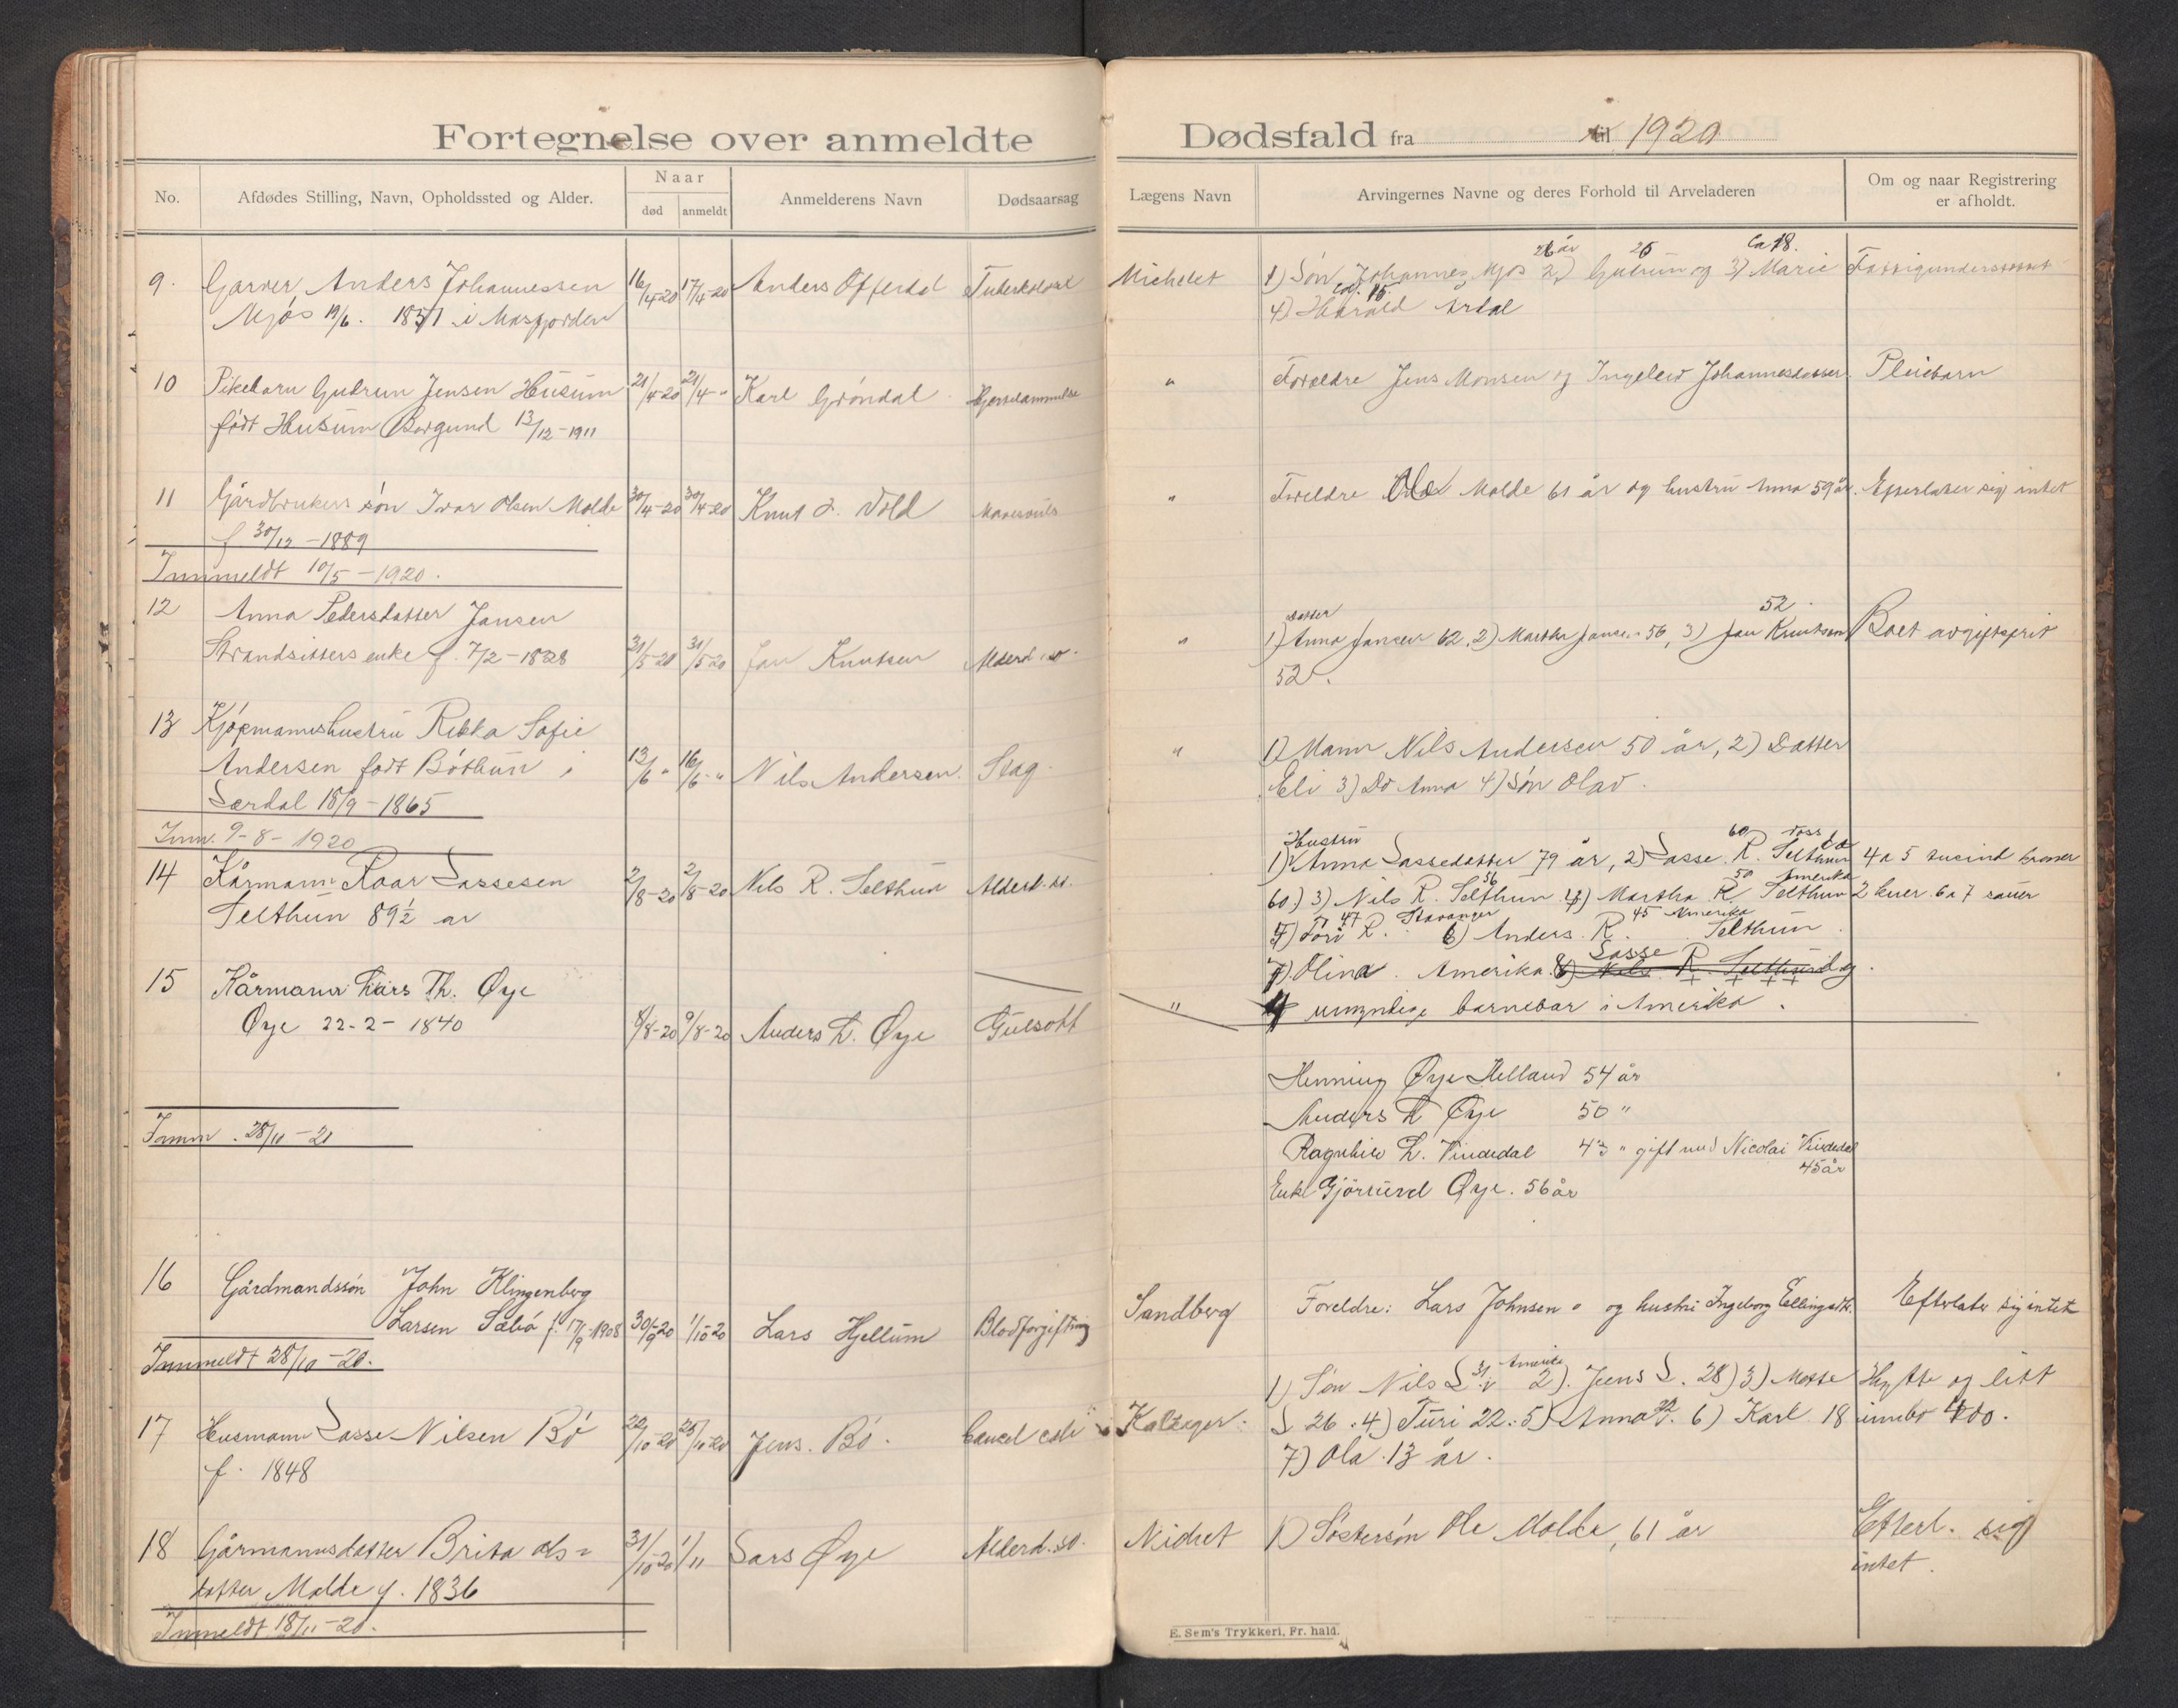 Fortegnelse over anmeldte Dødsfald fra til 1920
No. Afdødes Stilling, Navn, Opholdssted og Alder. Naar død anmeldt Anmelderens Navn Dødsaarsag Lægens Navn Arvingernes Navne og deres Forhold til Arveladeren Om og naar Registrering er afholdt.
9. Garver Anders Johannessen 16/4-20 17/4-20 Anders Offerdal Tuberkulose Michelet 1) Søn Johannes Mjøs 2) Gudrun 26 og 3) Marie Ca 18. Fattigunderstøttet
Mjøs 19/6. 1851 i Masfjorden 4) Harald Årdal
10 Pikebarn Gudrun Jensen Husum 21/4-20 21/4-" Karl Grøndal " Foreldre Jens Monsen og Ingeleiv Johannesdatter Pleiebarn
født Husum Borgund 13/12-1911
11 Gårdbrukers søn Ivar Olsen Molde 30/4-20 30/4-20 Knut L. Vold " Foreldre Ole Molde 61 år og hustru Anna 59 år. Efterlater sig intet
f 30/12-1889
Innmeldt 10/5-1920.
12 Anna Pedersdatter Jansen Datter 52
Strandsitters enke f. 7/2-1828 31/5-20 31/5-20 Jan Knutsen Alderd. sv. " 1) Anna Jansen 62, 2) Martha Jansen 56, 3) Jan Knutsen Boet avgiftsfrit
52.
13 Kjøpmannshustru Rebka Sofie
Andersen født Bøthun i 13/6 " 16/6-" Nils Andersen. Slag. " 1) Mann Nils Andersen 50 år, 2) Datter
Lærdal 18/9-1865 Eli 3) Do Anna 4) Søn Olav.
Inm. 9-8-1920
Hustru 60 Voss
14 Kårmann Roar Lassesen 2/8-20 2/8-20 Nils R. Selthun Alderd. sv. 1) Anna Lassedatter 79 år, 2) Lasse R. Selthun 4 a 5 tusind kroner
56 50 Amerika
Selthun 89½ ar 60) 3) Nils R. Selthun 4) Martha R. Selthun 2 kuer 6 a 7 sauer
47 Stavanger 45 Amerika
5) Turi R. 6) Anders R. Selthun
7) Olina. Amerika. 8) Lasse R. Selthun og
umyndige barnebar i Amerika.
15 Kårmann Lars Th. Øye
Øye 22-2-1840 8/8-20 9/8-20 Anders L. Øye Gulsott "
Henning Øye Helland 54 år
Anders L Øye 50 "
Innm. 28/10-20
Ragnhild L. Vindedal 43 " gift med Nicolai Vindedal
45 år
Enke Gjørund Øye. 56 år
16 Gårdmandssøn John Klingenberg
Larsen Sæbø f. 17/9-1908 30/9-20 1/10-20 Lars Hjellum Blodforgiftning Sandberg Foreldre: Lars Johnsen og hustru Ingeborg Ellingsdt. Efterlater sig intet
Innmeldt 28/10-20.
17 Husmann Lasse Nilsen Bø 22/10-20 25/10-20 Jens. Bø. 1) Søn Nils L 31 Amerika 2). Jens L. 28) 3) Mosse Hytte og litt
f. 1848 L 26. 4) Turi 22. 5) Anna 6) Karl 18 innbo
7) Ola. 13 år.
18 Gårmannsdatter Brita Ols= 31/10-20 1/11 Lars Øye Alderd. sv. 1) Søstersøn Ole Molde, 61 år Efterl. sig
datter Molde f. 1836 intet.
Innmeldt 18/11-20.
E. Sem's Trykkeri, Fr. hald.